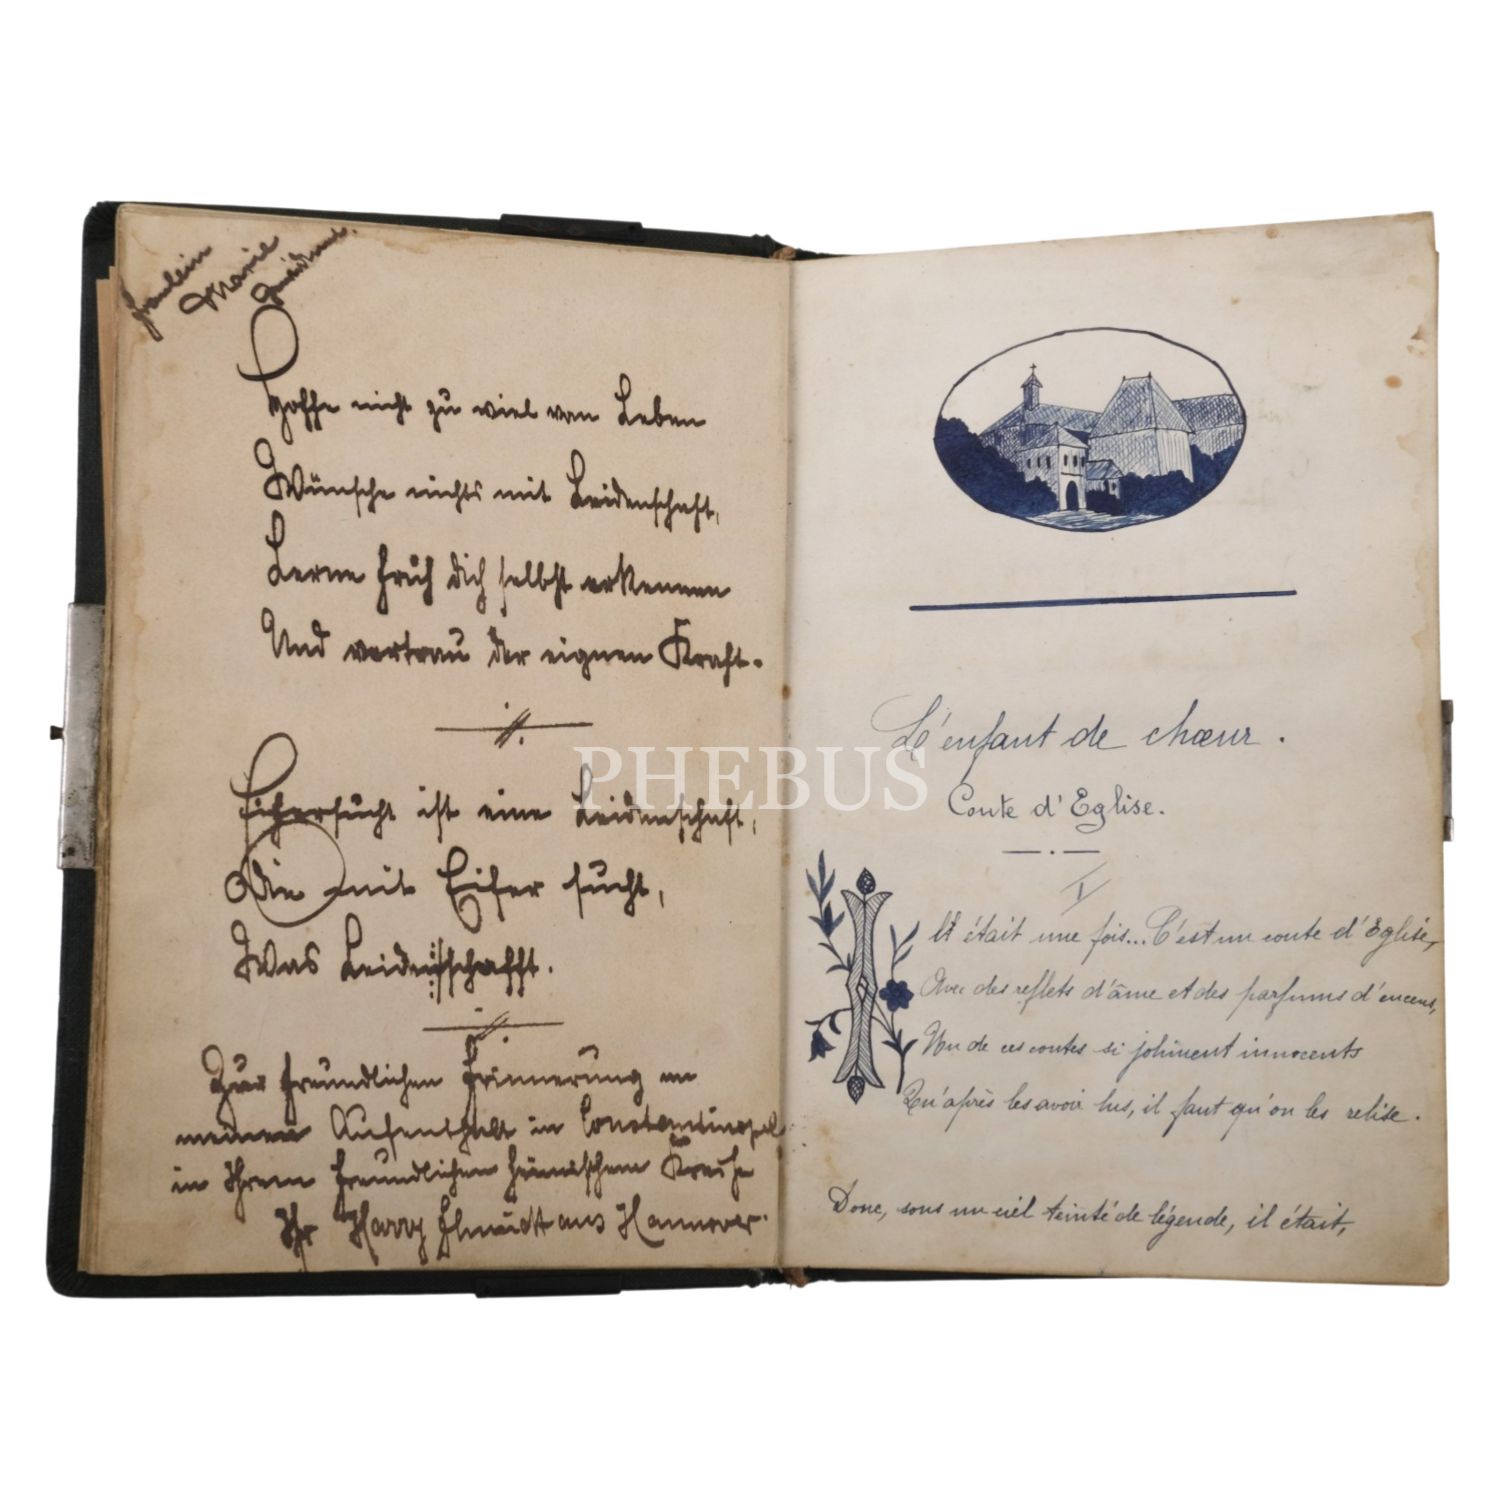 Fräulein
Marie
Hoffe nicht zu viel vom Leben
Wünsche nichts mit Leidenschaft,
Lerne früh dich selbst erkennen
Und vertrau der eignen Kraft.
Eifersucht ist eine Leidenschaft,
Die mit Eifer sucht,
Was Leiden schafft.
Zur freundlichen Erinnerung an
meinen Aufenthalt in Constantinopel
in Ihrem freundlichen heimischem Kreise
Ihr Harry aus Hannover.
PHEBUS
L'enfant de chœur.
Conte d'Eglise.
I
Il était une fois... C'est un conte d'Eglise,
Avec des reflets d'âme et des parfums d'encens,
Un de ces contes si joliment innocents
Qu'après les avoir lus, il faut qu'on les relise.
Donc, sous un ciel teinté de légende, il était,